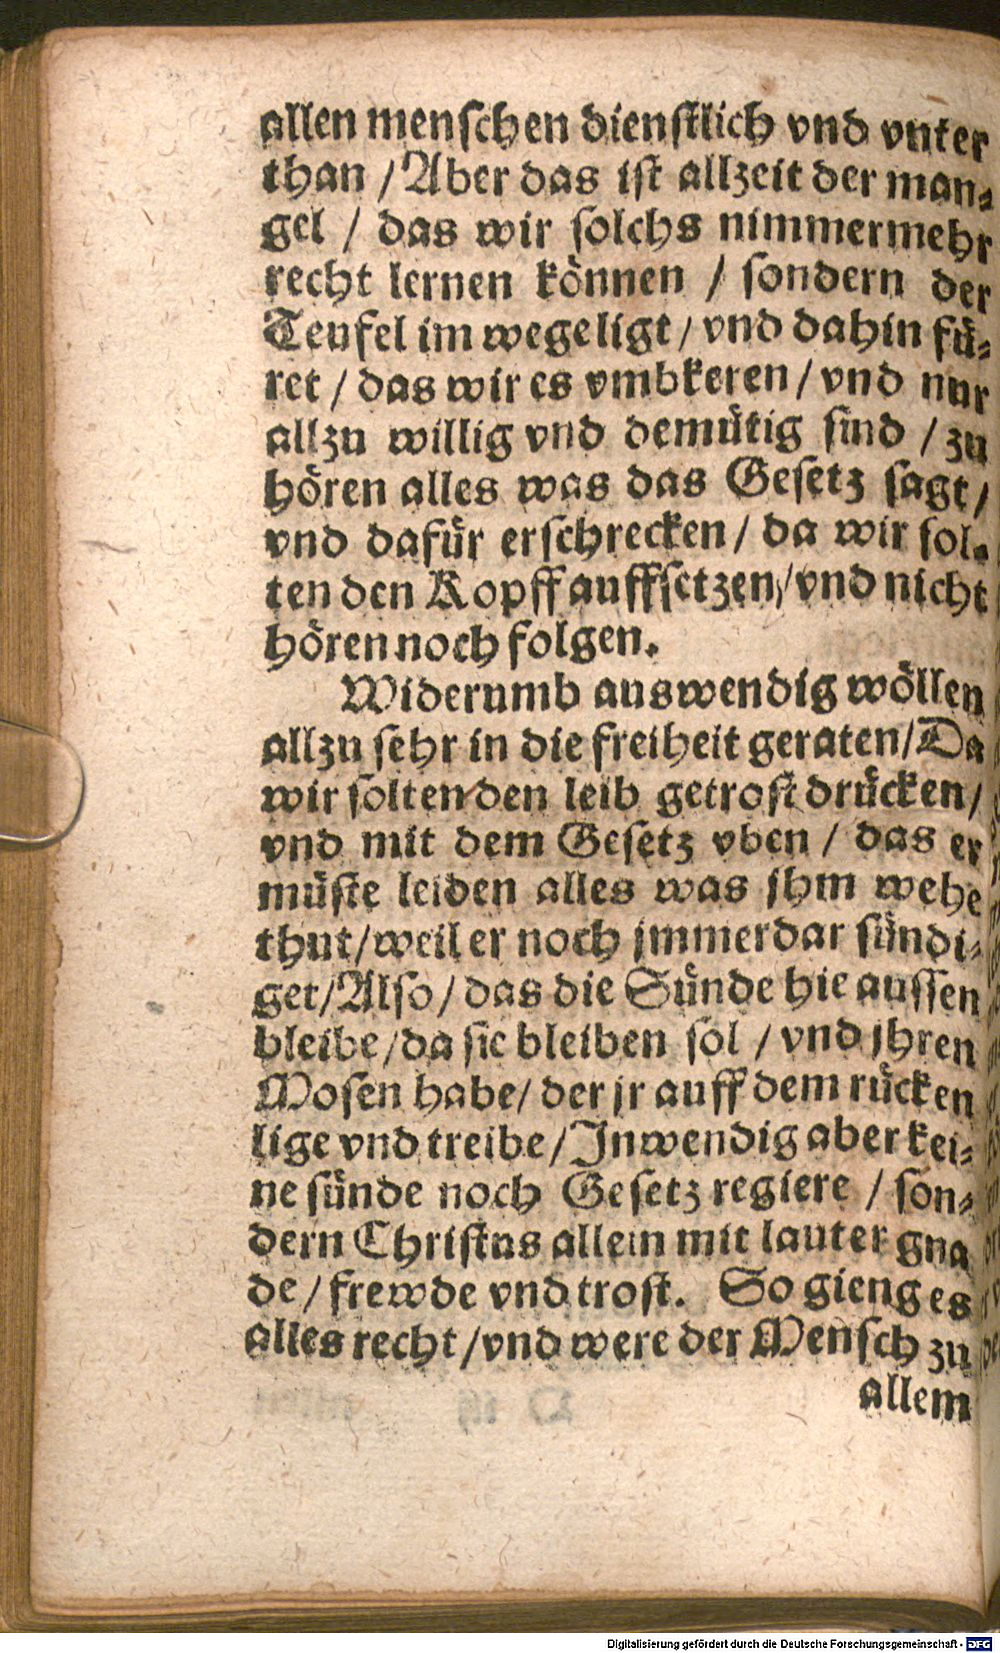 allen menschen dienstlich vnd vnter
than / Aber das ist allzeit der man-
gel / das wir solchs nimmermehr
recht lernen können / sondern der
Teufel im wege ligt / vnd dahin fü-
ret / das wir es vmbkeren / vnd nur
allzu willig vnd demütig sind / zu
hören alles was das Gesetz sagt /
vnd dafür erschrecken / da wir sol-
ten den Kopff auffsetzen / vnd nicht
hören noch folgen.
Widerumb auswendig wöllen
allzu sehr in die freiheit geraten / Da
wir solten den leib getrost drücken /
vnd mit dem Gesetz vben / das er
müste leiden alles was jhm wehe
thut / weil er noch jmmerdar sündi-
get / Also / das die Sünde hie aussen
bleibe / da sie bleiben sol / vnd jhren
Mosen habe / der jr auff dem rücken
lige vnd treibe / Inwendig aber kei-
ne sünde noch Gesetz regiere / son-
dern Christus allein mit lauter gna
de / frewde vnd trost. So gieng es
alles recht / vnd were der Mensch zu
allem
Digitalisierung gefördert durch die Deutsche Forschungsgemeinschaft - DFG